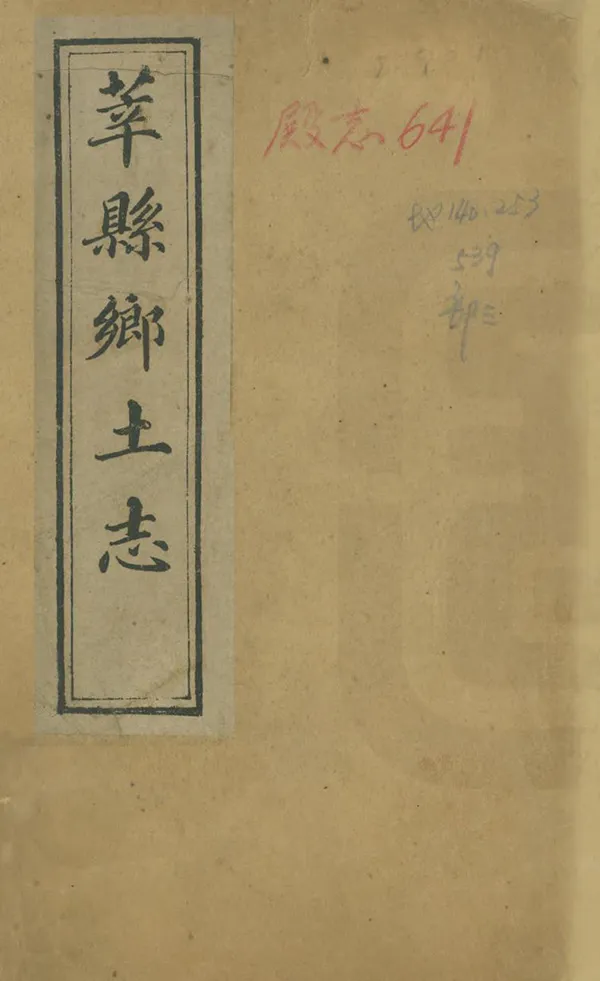 莘縣鄉土志
殿志641
地140.253
539
部三